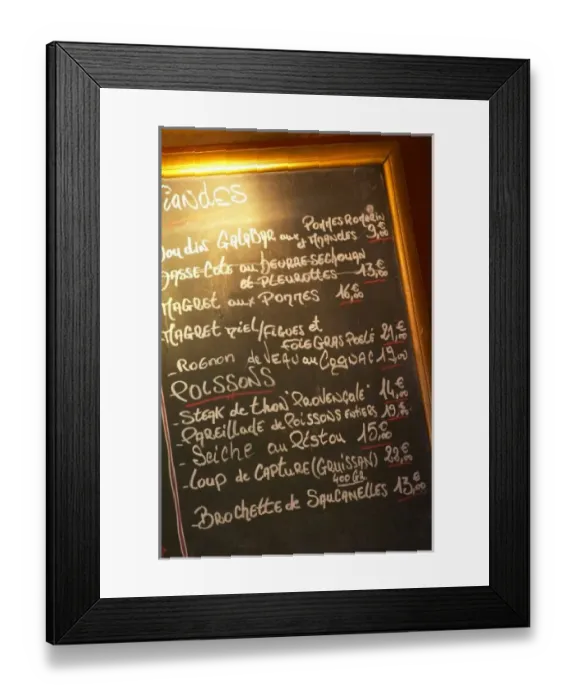 iandes
oudin GALABAR aux POMMES ROMARIN
et MIANGLES 9,00€
BASSE-COTE au BEURRE SECHOUAN
et PLEUROTTES 13,00€
MAGRET aux POMMES 16,00€
MAGRET MIEL/FIGUES et
FOIE GRAS POELÉ 21,00€
-ROGNON de VEAU au COGNAC 19,00€
POISSONS
-STEAK de thon "PROVENÇALE" 14,00€
-PAREILLADE de POISSONS ENTIERS 19,50€
-SEICHE au PISTOU 15,00€
-LOUP de CAPTURE (GRUISSAN) 22,00€
400 GR
-BROCHETTE de SAUCANELLES 13,00€